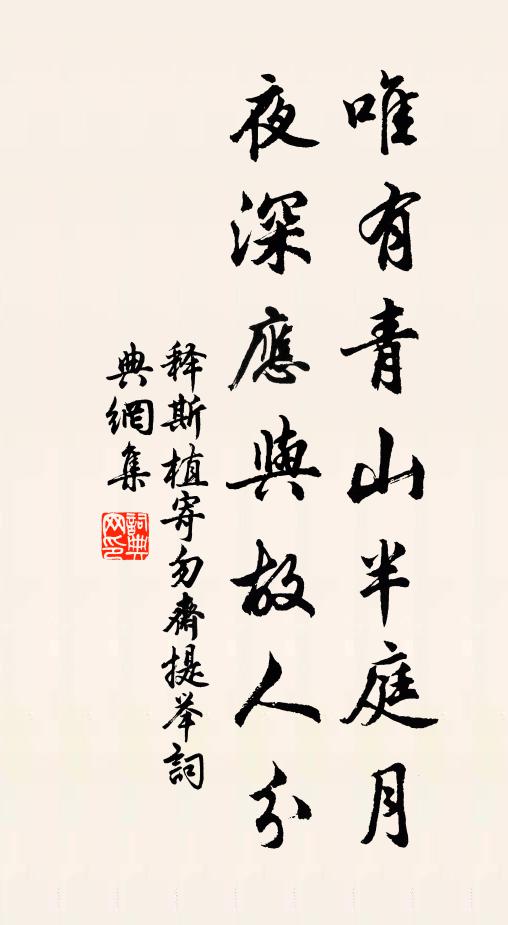 唯有青山半庭月
夜深應與故人分
釋斯植寄勿齋提举詞
典網集
詞典
网印